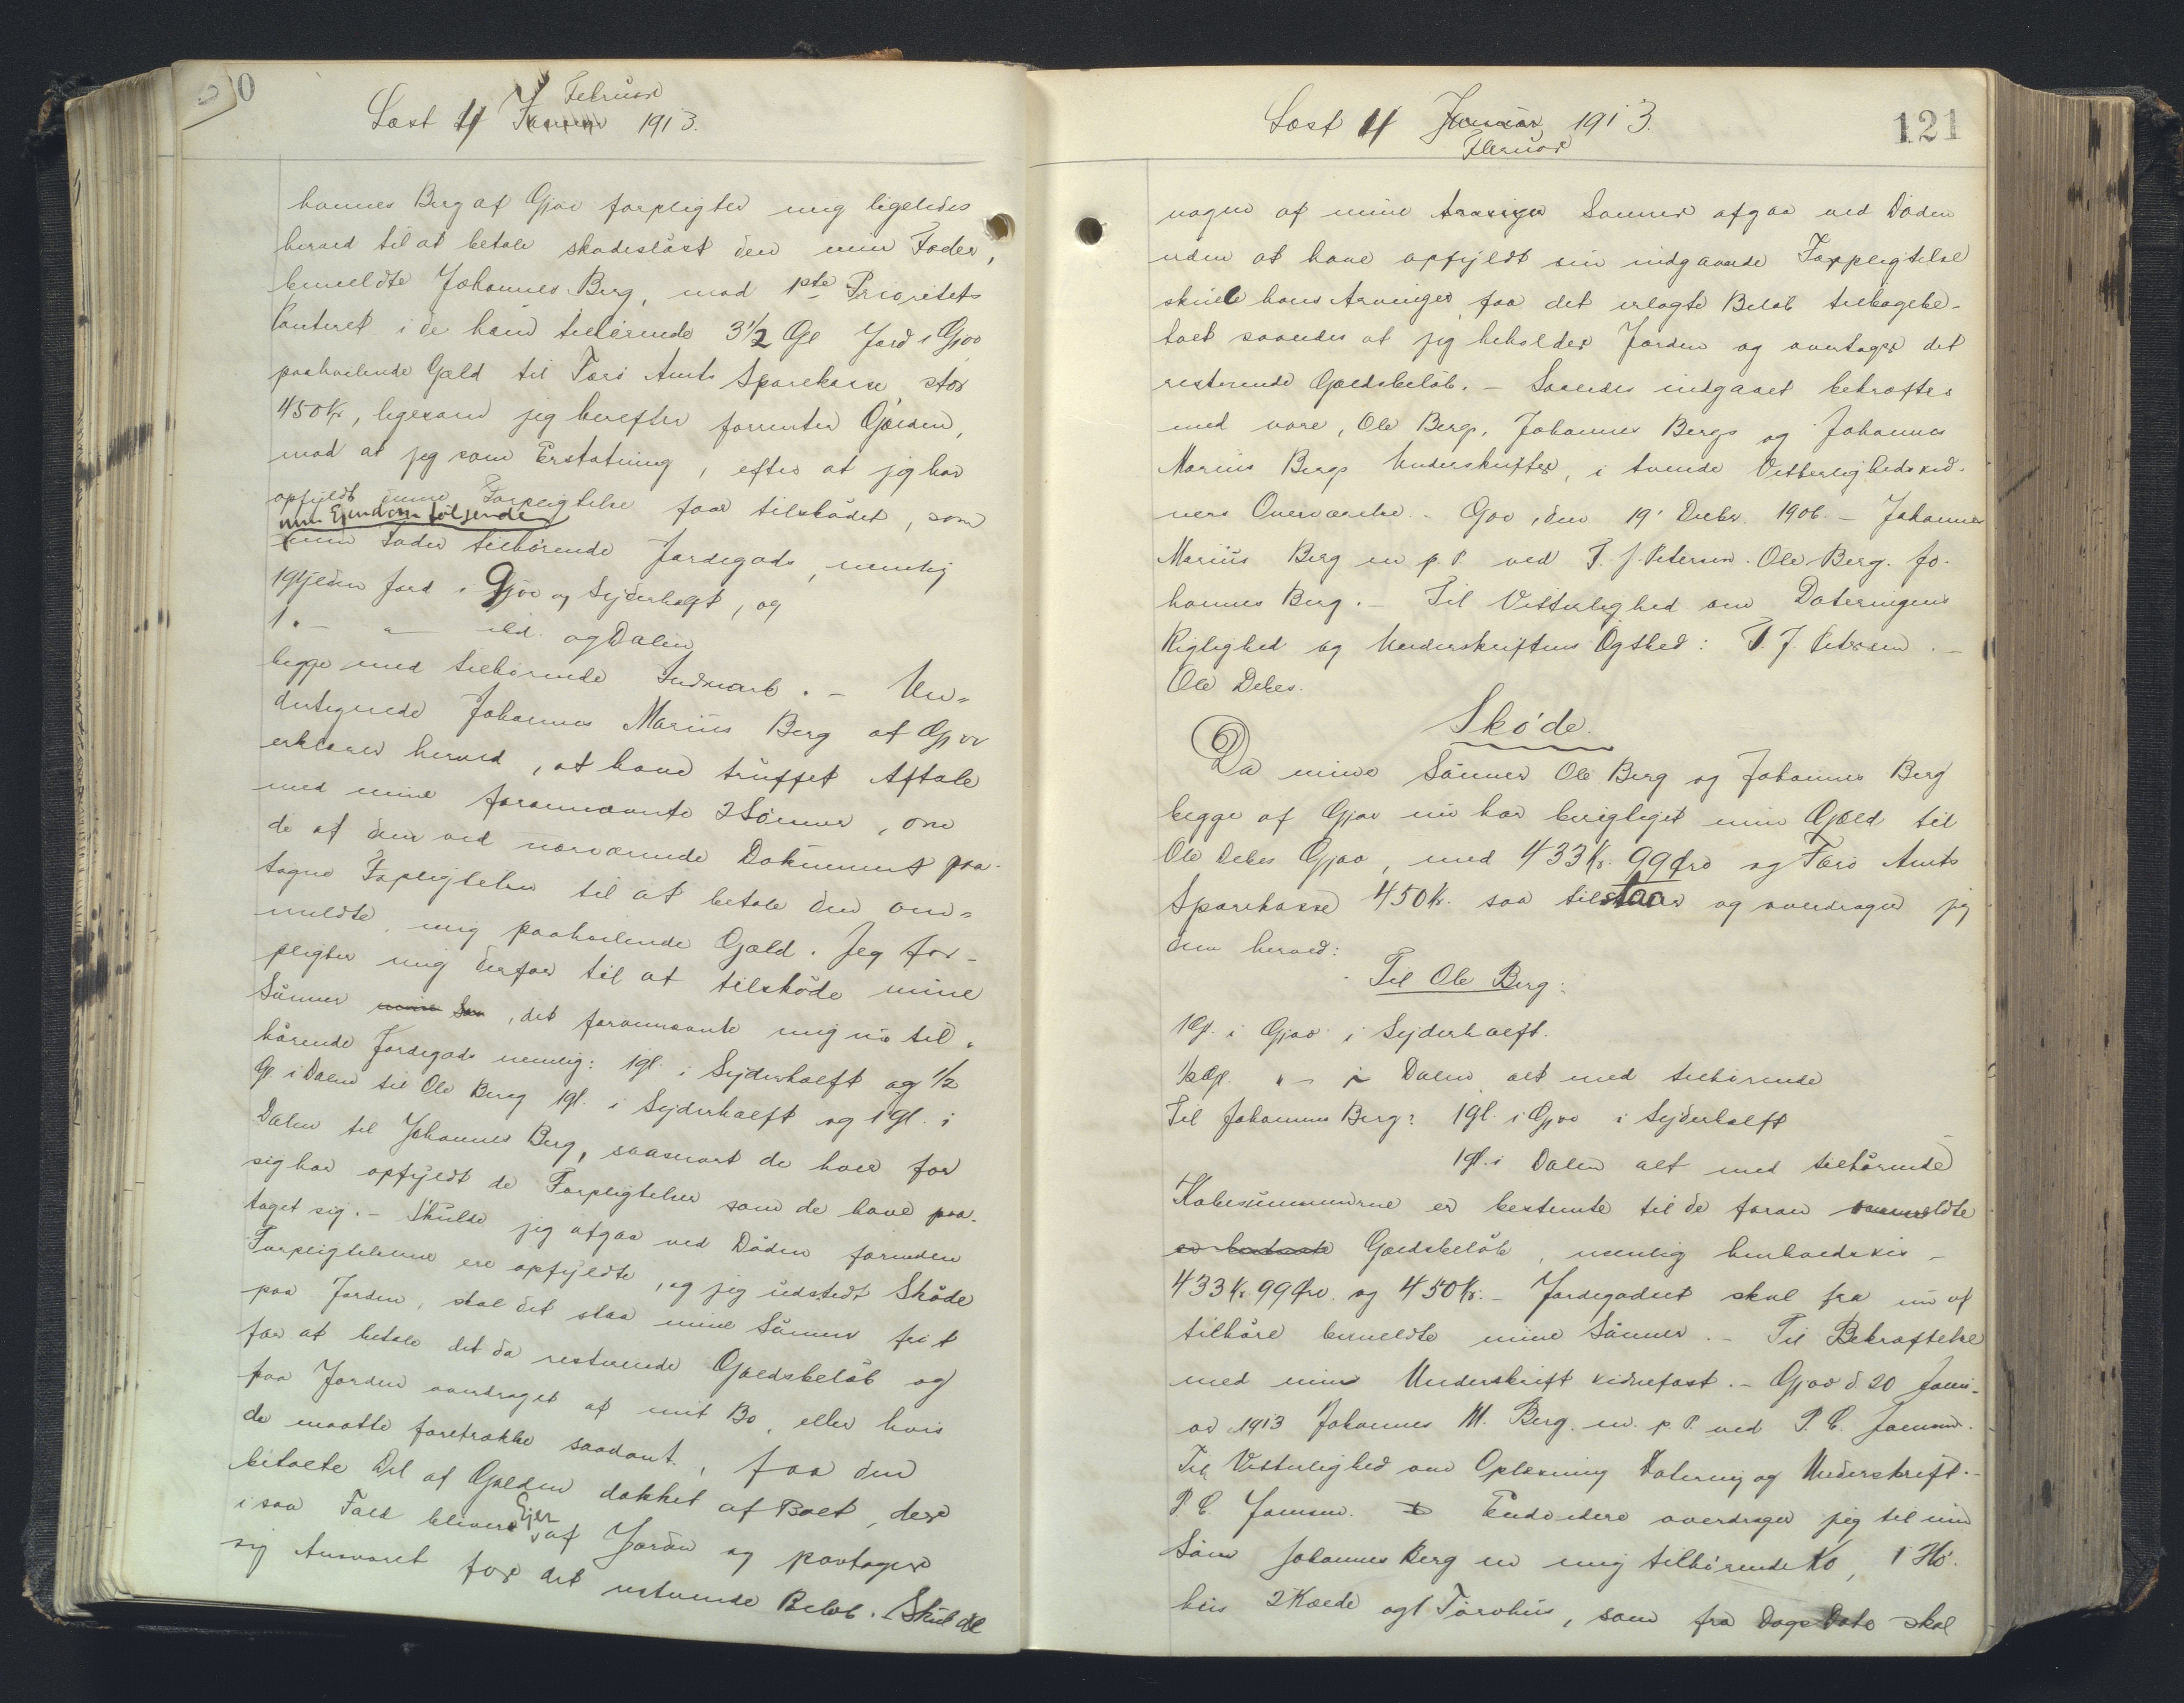 0
Læst 4 Januar Februar 1913.
hannes Berg af Gjov forpligter mig ligeledes
herved til at betale skadesløst den min Fader,
bemeldte Johannes Berg, mod 1ste Prioritets
Panteret i de ham tilhørende 3 1/2 Gl Jord i Gjov
paahvilende Gæld til Færø Amts Sparekasse stor
450 Kr, ligesom jeg herefter forrenter Gjælden,
mod at jeg som Erstatning, efter at jeg har
opfyldt denne Forpligtelse faar tilskødet, som
min Ejendom følgende
min Fader tilhørende Jordegods, nemlig
1 Gylden Jord i Gjov og Syderhalft, og
1 " — " — ibd. og Dalen
begge med tilhørende Indmark. — Un-
dertegnede Johannes Marius Berg af Gjov
erklærer herved, at have truffet Aftale
med mine forannævnte 2 Sønner, om
de af dem ved nærværende Dokument paa-
tagne Forpligtelser til at betale den om-
meldte, mig paahvilende Gjæld. Jeg for-
pligter mig derfor til at tilskøde mine
Sønner mine Søn, det forannævnte mig nu til-
hørende Jordegods nemlig: 1 gl. i Syderhalft og 1/2
Gl i Dalen til Ole Berg 1 gl. i Syderhalft og 1 gl. i
Dalen til Johannes Berg, saasnart de hver for
sig har opfyldt de Forpligtelser som de have paa-
taget sig. — Skulde jeg afgaa ved Døden forinden
Forpligtelserne ere opfyldte, og jeg udstedt Skøde
paa Jorden, skal det staa mine Sønner frit
for at betale det da resterende Gjældsbeløb og
faa Jorden overdraget af mit Bo, eller hvis
de maatte foretrække saadant, faa den
betalte Del af Gjælden dækket af Boet, der
i saa Fald bliver Ejer af Jorden og paatager
sig Ansvaret for det resterende Beløb. Skulde
Læst 4 Januar 1913.
Februar
121
nogen af mine Sønner afgaa ved Døden
uden at have opfyldt sin indgaaede Forpligtelse
skulle hans Arvinger, faa det erlagte Beløb tilbagebe-
talt saaledes at jeg beholder Jorden og overtager det
resterende Gjældsbeløb. — Saaledes indgaaet bekræftes
med vore, Ole Berg, Johannes Bergs og Johannes
Marius Bergs Underskrifter, i tvende Vitterlighedsvid-
ners Overværelse. — Gjov, den 19' Decbr. 1906. — Johannes
Marius Berg m p. P. ved P. J. Petersen. Ole Berg. Jo-
hannes Berg. — Til Vitterlighed om Dateringens
Rigtighed og Underskriftens Ægthed: P. J. Petersen. —
Ole Debes.
Skøde.
Da mine Sønner Ole Berg og Johannes Berg
begge af Gjov nu har berigtiget min Gjæld til
Ole Debes Gjov, med 433 Kr. 99 Øre og Færø Amts
Sparekasse 450 Kr. saa tilstaar og overdrager jeg
dem herved:
Til Ole Berg:
1 Gl. i Gjov i Syderhalft.
1/2 Gl. " — i Dalen alt med tilhørende
Til Johannes Berg: 1 gl. i Gjov i Syderhalft
1 gl. i Dalen alt med tilhørende
Købesummerne er bestemte til de foran ommeldte
er bestemte Gjældsbeløb, nemlig henholdsvis —
433 Kr. 99 Øre og 450 Kr. — Jordegodset skal fra nu af
tilhøre bemeldte mine Sønner. — Til Bekræftelse
med min Underskrift vidnefast. — Gjov d 20 Janu-
ar 1913 Johannes M. Berg. m. p. P. ved P. C. Joensen.
Til Vitterlighed om Oplæsning Datering og Underskrift. —
P. C. Joensen. Endvidere overdrager jeg til min
Søn Johannes Berg en mig tilhørende Ko, 1 Hø-
hus 2 og 1 Tørvhus, som fra Dags Dato skal